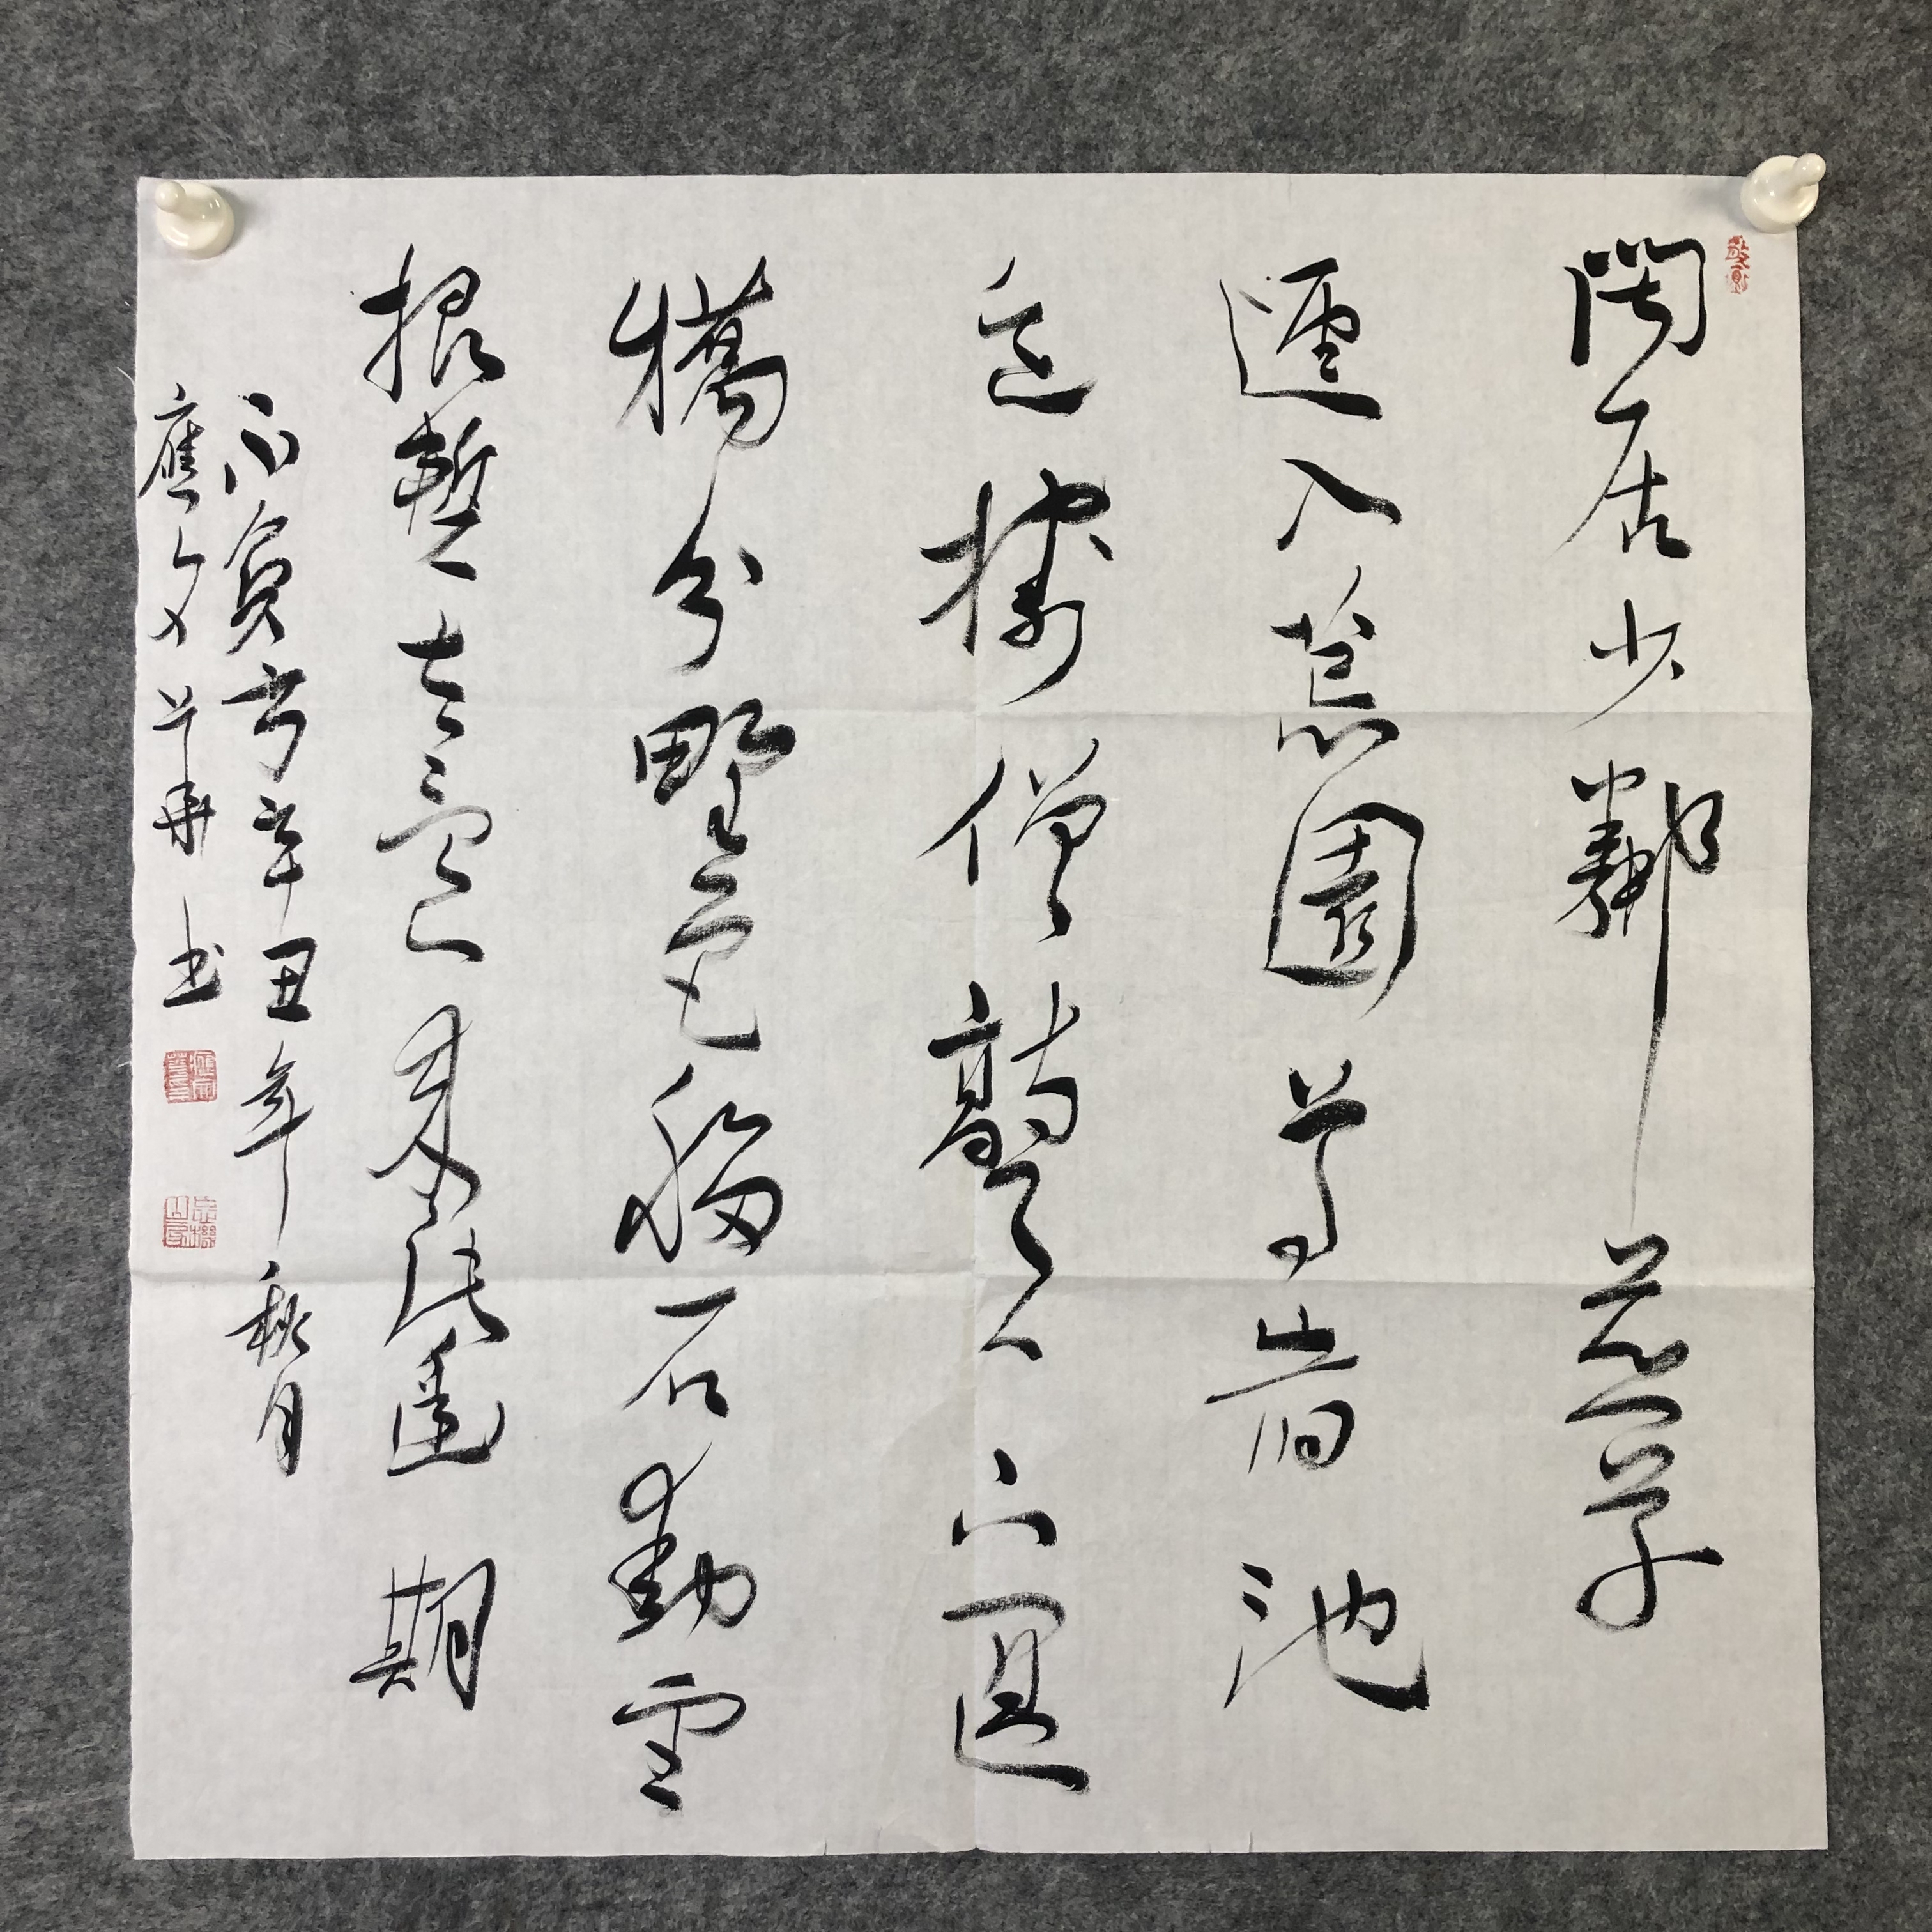 閒居少鄰並草
逕入荒園鳥宿池
邊樹僧敲月下門過
橋分野色移石動雲
根暫去還來此幽期
不負言辛丑年秋月
應文華书